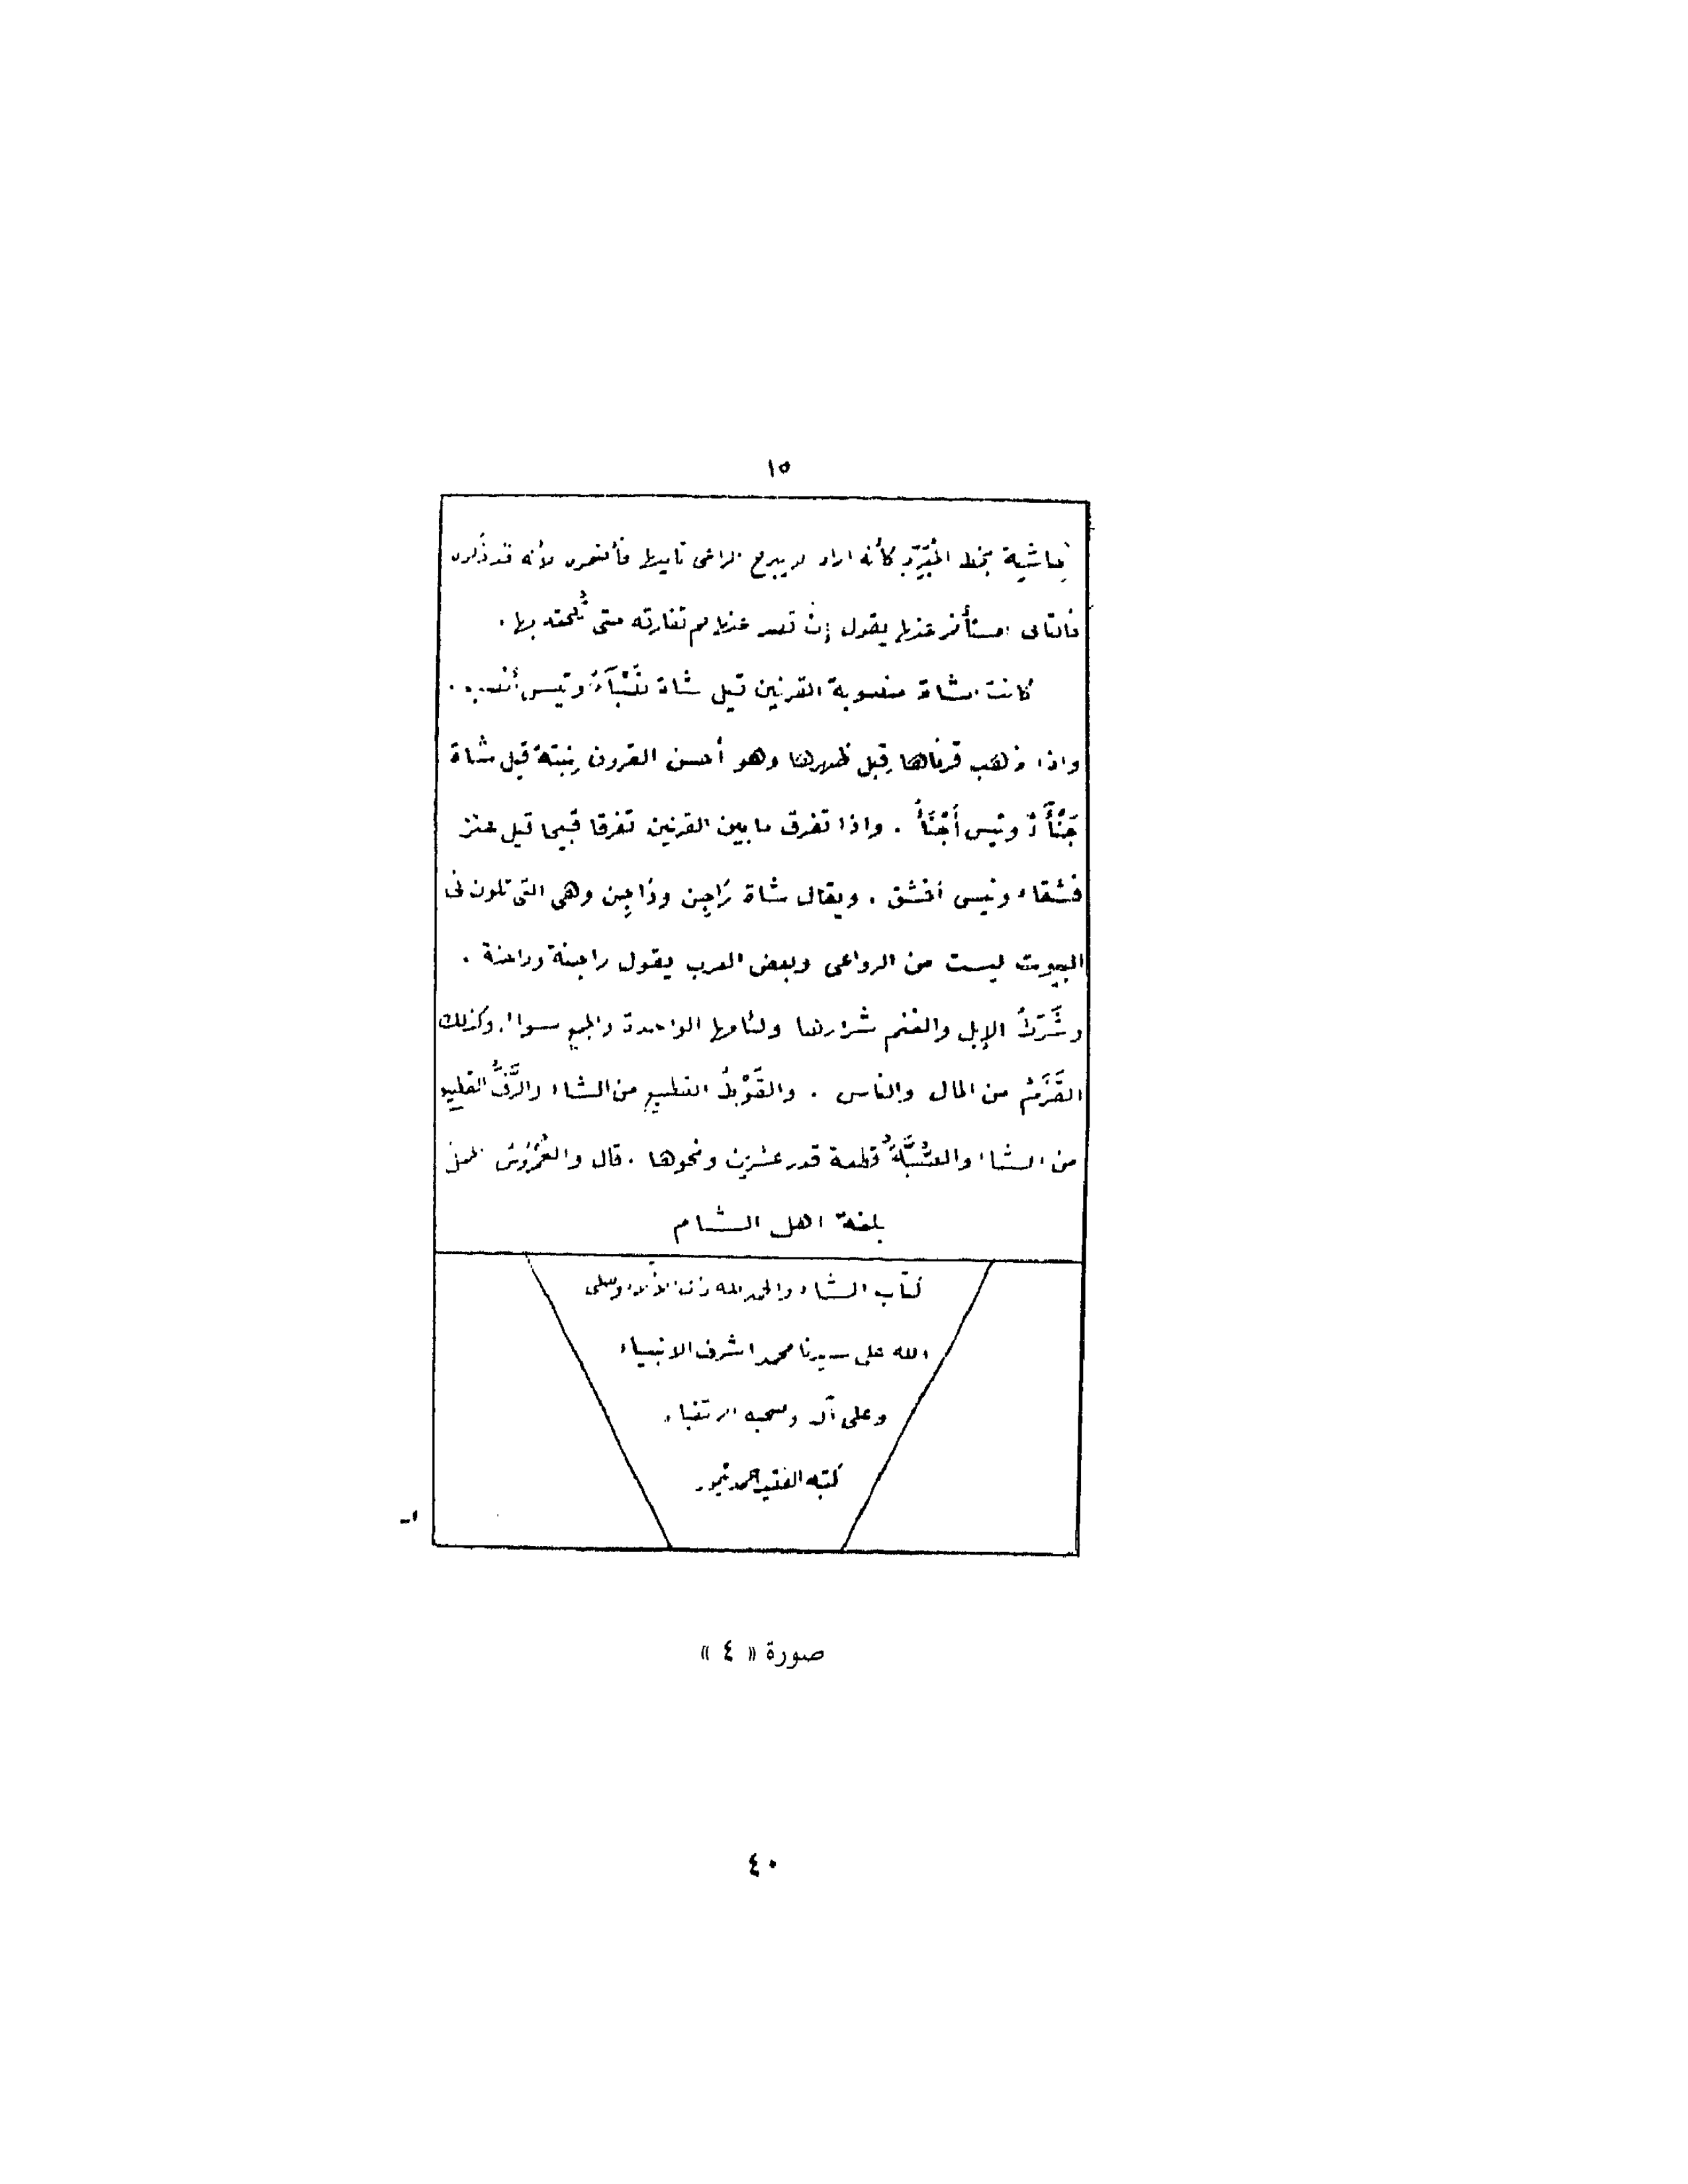 ١٥
بخط المبرّد كأنه اراد الراعى لأنه قد
يقول إن عنها لم تفارقه حتى تلحقه بها .
كانت الشاة منصوبة القرنين قيل شاة نَصْبَآءُ وتيس أنصب .
واذا ذهب قرناها قِبل ظهرها وهو أحسن القرون نِبتةً قيل شاة
جَنْأَءُ وتيس أَجْنَأُ . واذا تفرق ما بين القرنين تفرقا قبيحا قيل عنز
فشقاء وتيس أفشق . ويقال شاة رَاجِن ودَاجِن وهى التى تكون فى
البيوت ليست من الرواعى وبعض العرب يقول راجنة وداجنة .
وشَرَطُ الإبل والغنم شرارها ولئامها الواحدة والجمع سواء . وكذلك
القَزَمُ من المال والناس . والقَوْطُ القطيع من الشاء والرَّفُّ القطيع
من الشاء والصُّبَّةُ قطعة قدر عشرين ونحوها . قال والعُمْرُوسُ الحمل
بلغة اهل الشام
كتاب الشاء والحمد لله وصلى
الله على سيدنا محمد اشرف الانبياء
وعلى آله وصحبه الاتقياء
كتبه الفقير احمد تيمور
صورة « ٤ »
٤٠